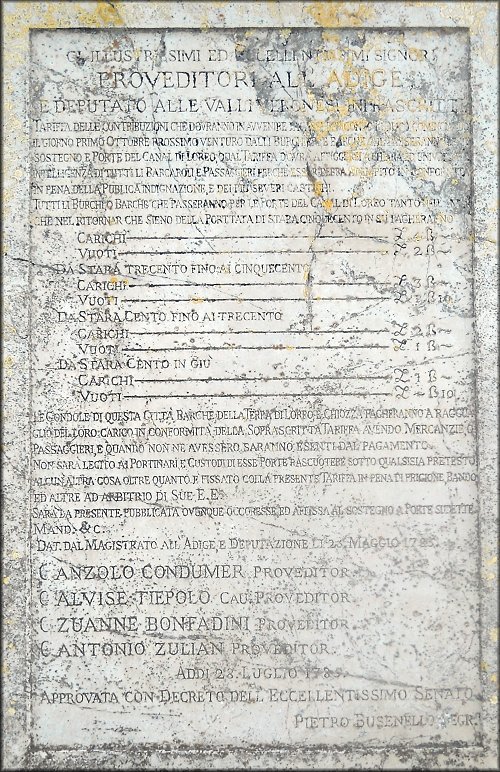 GL ILLUSTRISSIMI ED ECCELLENTISSIMI SIGNORI
PROVEDITORI ALL ADIGE
E DEPUTATO ALLE VALLI VERONESI INFRASCRITTI
TARIFFA DELLE CONTRIBUZIONI CHE DOVRANNO IN AVVENIRE
IL GIORNO PRIMO OTTOBRE PROSSIMO VENTURO DALLI BURCHI
SOSTEGNO E PORTE DEL CANAL DI LOREO, QUAL TARIFFA DOVRA
INTELLIGENZA DI TUTTI LI BARCAROLI E PASSAGGIERI PERCHE
IN PENA DELLA PUBLICA INDIGNAZIONE, E DEI PIU SEVERI CASTIGHI.
TUTTI LI BURCHI, O BARCHE CHE PASSERANNO PER LE PORTE DEL CANAL DI LOREO TANTO
CHE NEL RITORNAR CHE SIENO DELLA PORTTATA DI STARA CINQUECENTO IN SU PAGHERANNO
CARICHI
VUOTI £ 2 ß~
DA STARA TRECENTO FINO AI CINQUECENTO
CARICHI £ 3 ß~
VUOTI ß 10
DA STARA CENTO FINO AI TRECENTO
CARICHI £ 2 ß~
VUOTI £ 1 ß~
DA STARA CENTO IN GIU
CARICHI £ 1 ß~
VUOTI £~ ß 10
LE GONDOLE DI QUESTA CITTA BARCHE DELLA TERRA DI LOREO, E CHIOZZA PAGHERANNO A RAGGUA
GLIO DEL LORO CARICO IN CONFORMITA DELLA SOPRASCRITTA TARIFFA AVENDO MERCANZIE, O
PASSAGGIERI, E QUANDO NON NE AVESSERO SARANNO ESENTI DAL PAGAMENTO
NON SARA LECITO AI PORTINARI, E CUSTODI DI ESSE PORTE RASCUOTERE SOTTO QUALSISIA PRETESTO
ALCUN ALTRA COSA OLTRE QUANTO E FISSATO COLLA PRESENTE TARIFFA IN PENA DI PRIGIONE BANDO
ED ALTRE AD ARBITRIO DI SUE E.E.
SARA DA PRESENTE PUBLICATA OVUNQUE OCCORESSE ED AFFISSA AL SOSTEGNO A PORTE SUDETTE
MAND. & C.
DAT. DAL MAGISTRATO ALL ADIGE E DEPUTAZIONE LI 23. MAGGIO 1785.
C ANZOLO CONDUMER PROVEDITOR
C ALVISE TIEPOLO CAU. PROVEDITOR
C ZUANNE BONFADINI PROVEDITOR
C ANTONIO ZULIAN PROVEDITOR
ADDI 28. LUGLIO 1785.
APPROVATA CON DECRETO DELL ECCELLENTISSIMO SENATO
PIETRO BUSENELLO SEGR.